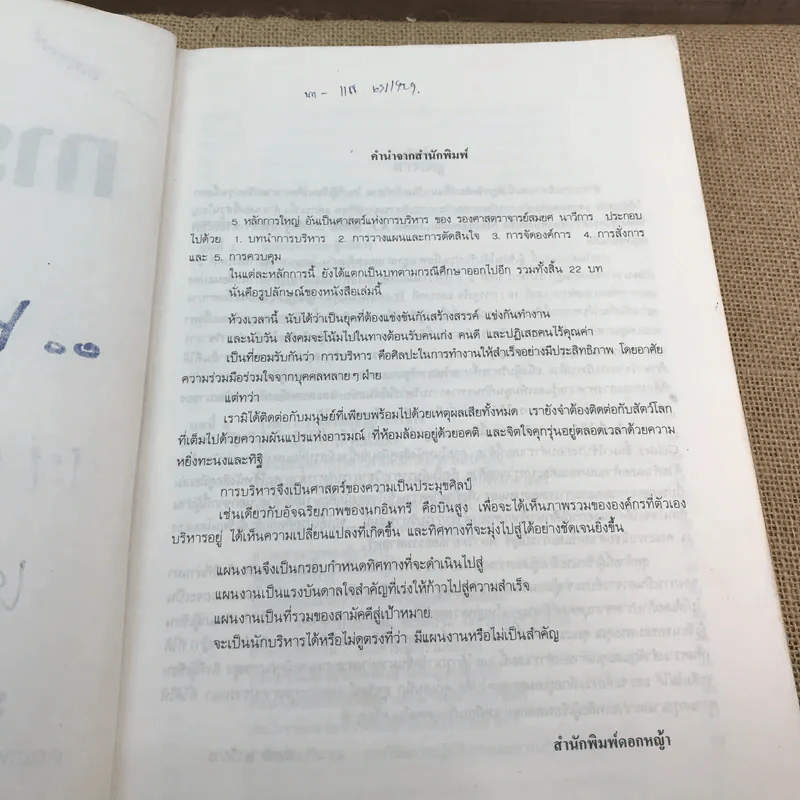 คำนำจากสำนักพิมพ์
5 หลักการใหญ่ อันเป็นศาสตร์แห่งการบริหาร ของ รองศาสตราจารย์สมยศ นาวีการ ประกอบ
ไปด้วย 1. บทนำการบริหาร 2. การวางแผนและการตัดสินใจ 3. การจัดองค์การ 4. การสั่งการ
และ 5. การควบคุม
ในแต่ละหลักการนี้ ยังได้แตกเป็นบทตามกรณีศึกษาออกไปอีก รวมทั้งสิ้น 22 บท
นั่นคือรูปลักษณ์ของหนังสือเล่มนี้
ห้วงเวลานี้ นับได้ว่าเป็นยุคที่ต้องแข่งขันกันสร้างสรรค์ แข่งกันทำงาน
และนับวัน สังคมจะโน้มไปในทางต้อนรับคนเก่ง คนดี และปฏิเสธคนไร้คุณค่า
เป็นที่ยอมรับกันว่า การบริหาร คือศิลปะในการทำงานให้สำเร็จอย่างมีประสิทธิภาพ โดยอาศัย
ความร่วมมือร่วมใจจากบุคคลหลายๆ ฝ่าย
แต่ทว่า
เรามิได้ติดต่อกับมนุษย์ที่เพียบพร้อมไปด้วยเหตุผลเสียทั้งหมด เรายังจำต้องติดต่อกับสัตว์โลก
ที่เต็มไปด้วยความผันแปรแห่งอารมณ์ ที่ห้อมล้อมอยู่ด้วยอคติ และจิตใจคุกรุ่นอยู่ตลอดเวลาด้วยความ
หยิ่งทะนงและทิฐิ
การบริหารจึงเป็นศาสตร์ของความเป็นประมุขศิลป์
เช่นเดียวกับอัจฉริยภาพของนกอินทรี คือบินสูง เพื่อจะได้เห็นภาพรวมขององค์กรที่ตัวเอง
บริหารอยู่ ได้เห็นความเปลี่ยนแปลงที่เกิดขึ้น และทิศทางที่จะมุ่งไปสู่ได้อย่างชัดเจนยิ่งขึ้น
แผนงานจึงเป็นกรอบกำหนดทิศทางที่จะดำเนินไปสู่
แผนงานเป็นแรงบันดาลใจสำคัญที่เร่งให้ก้าวไปสู่ความสำเร็จ
แผนงานเป็นที่รวมของสามัคคีสู่เป้าหมาย
จะเป็นนักบริหารได้หรือไม่ดูตรงที่ว่า มีแผนงานหรือไม่เป็นสำคัญ
สำนักพิมพ์ดอกหญ้า